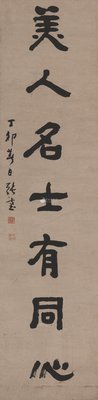 美人名士有同心
丁卯春日張